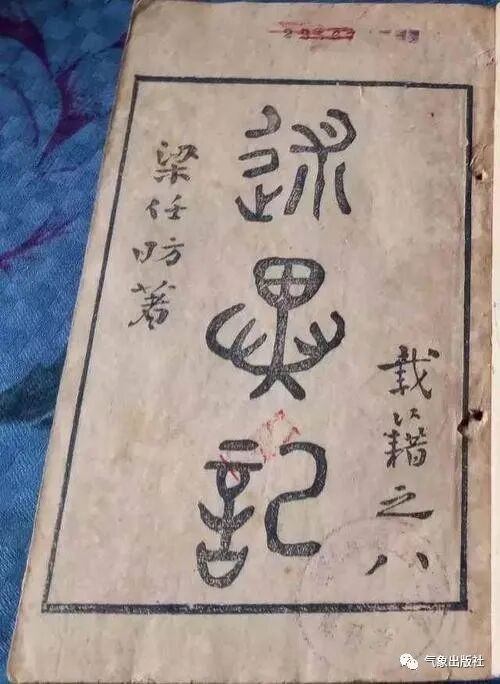 載籍之八
述異記
梁任昉著
气象出版社